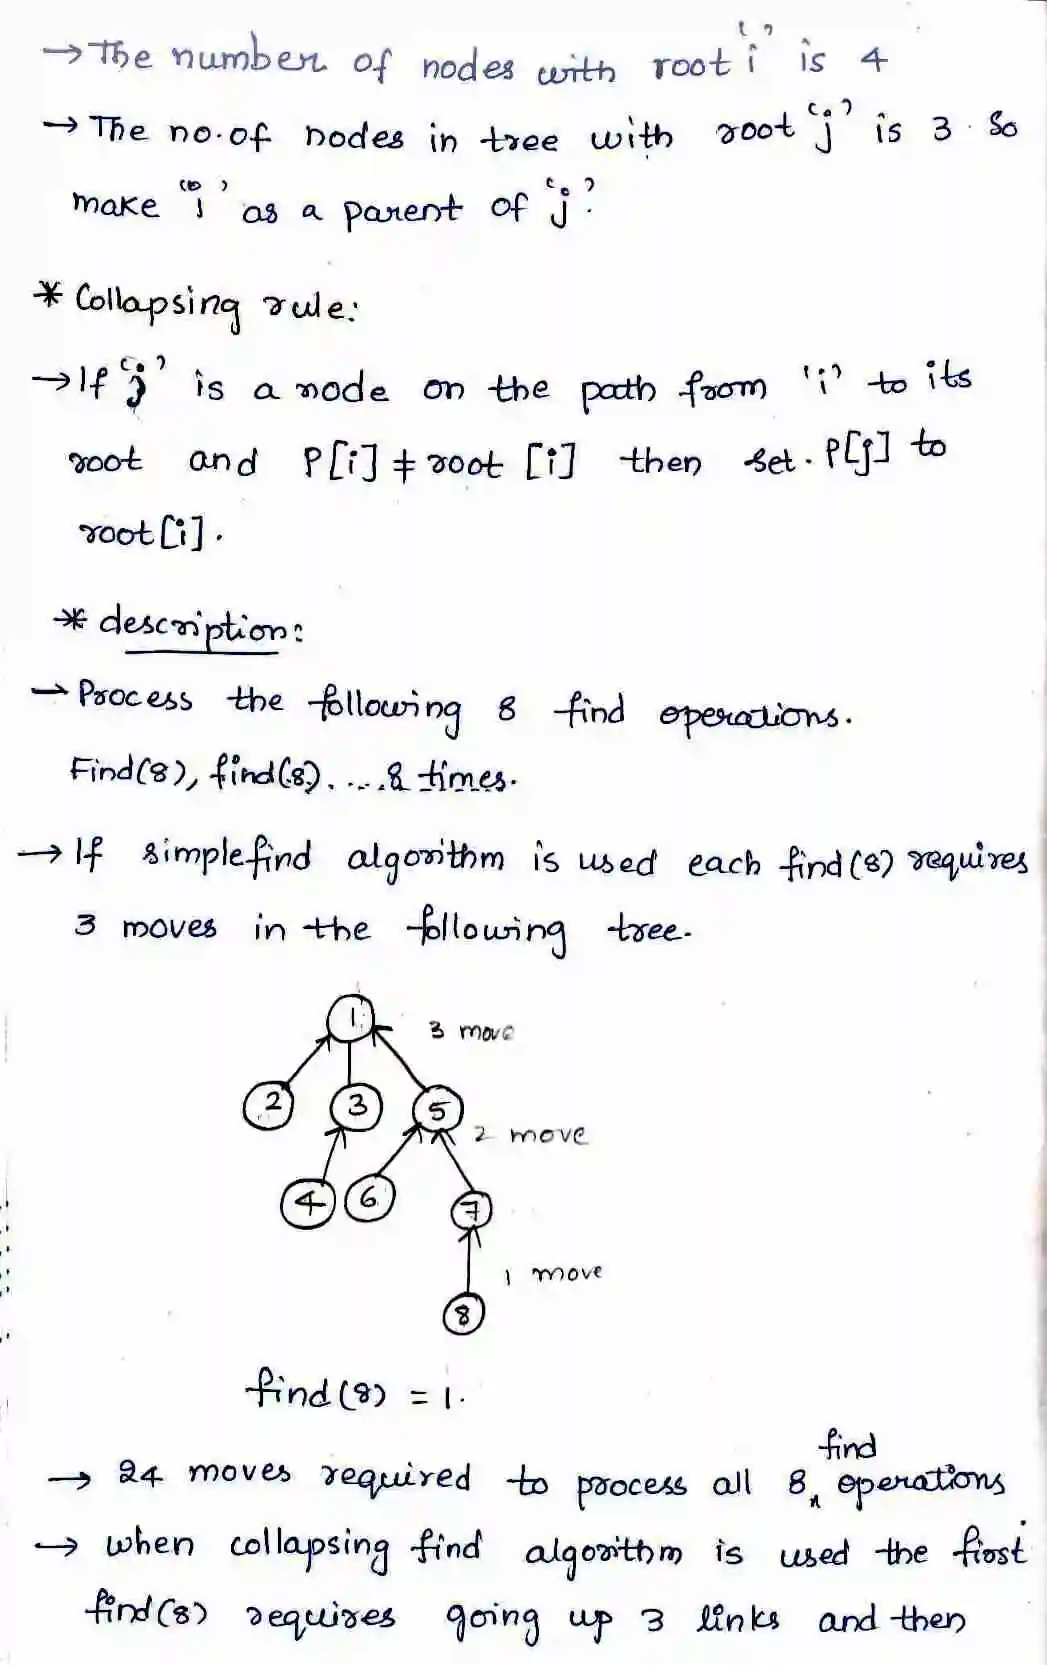 → The number of nodes with root 'i' is 4
→ The no.of nodes in tree with root 'j' is 3. So
make 'i' as a parent of 'j'.
* Collapsing rule:
→ If 'j' is a node on the path from 'i' to its
root and P[i] ≠ root [i] then set. P[j] to
root[i].
* description:
→ Process the following 8 find operations.
Find(8), find(8), ....8 times.
→ If simplefind algorithm is used each find(8) requires
3 moves in the following tree.
1
3 move
2 3 5
2 move
4 6 7
1 move
8
find(8) = 1.
→ 24 moves required to process all 8 find operations
→ when collapsing find algorithm is used the first
find(8) requires going up 3 links and then